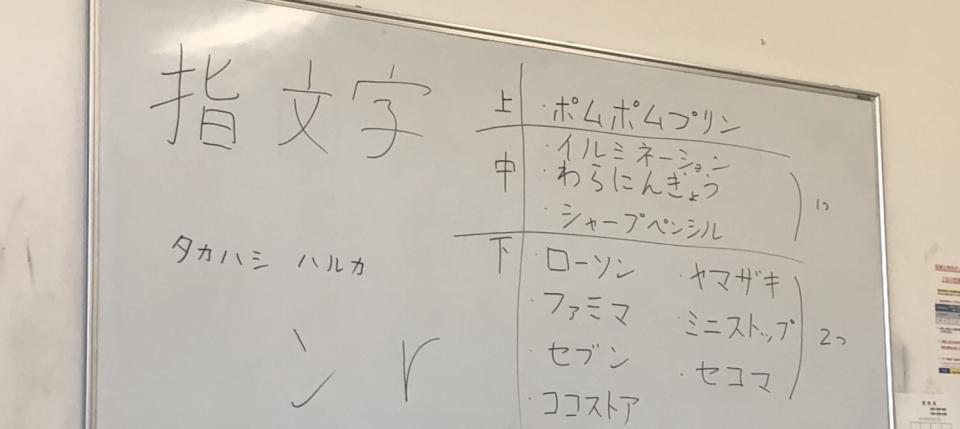 指文字
上 ・ポムポムプリン
中 ・イルミネーション
・わらにんぎょう
・シャープペンシル
1つ
タカハシ ハルカ
下 ・ローソン ・ヤマザキ
・ファミマ ・ミニストップ
・セブン ・セコマ
・ココストア
2つ
ン r